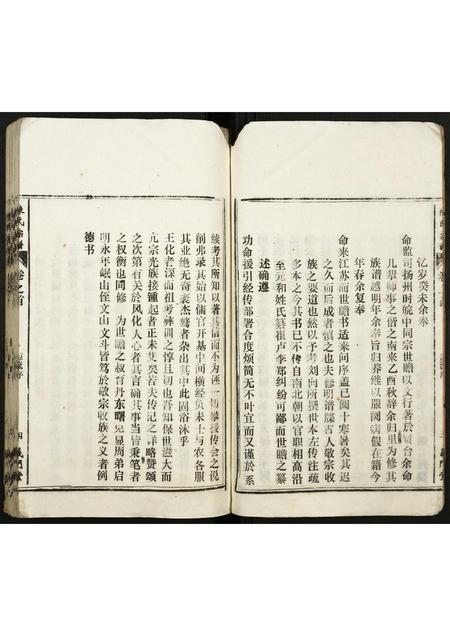 忆岁癸未余奉
命监司扬州时皖中同宗世瞻以文行著於
台余命
儿辈师事之偕之南来乙酉秋辞余归里为修其
族谱越明年余奉旨归养继以服阕病假在籍今
年春余复奉
命来江苏而世瞻书适来问序盖已阅十寒暑矣其迟
之久而后成者慎之也夫修明谱牒古人敬宗收
族之要道也然以予考刘向所撰世本左传注疏
多本之今其书已不传自南北朝以官职相高沿
至元和姓氏纂崔卢李郑纠纷可鄙而世瞻之纂
述确遵
功命援引经传部署合度烦简无不叶宜而又谨於系
续考其所知以著其信而不为诬一切攀援傅会之说
削弗录其始以儒官开基中间横经负耒士与农各服
其业绝无奇衺杰骜者杂出其中此固浴沐乎
王化者深而祖考彝训之惇且切也吾知保世滋大而
亢宗光族接锺起者正未艾矣若夫传记之详略赞颂
之次第有关於风化人心者其言确其事当皆秉笔者
之权衡也同修 为世瞻之叔育丹东曙兄显周弟启
明永年岷山侄文山文斗皆笃於敬宗收族之义者例
德书
陈氏宗谱
卷之首
四
义门堂